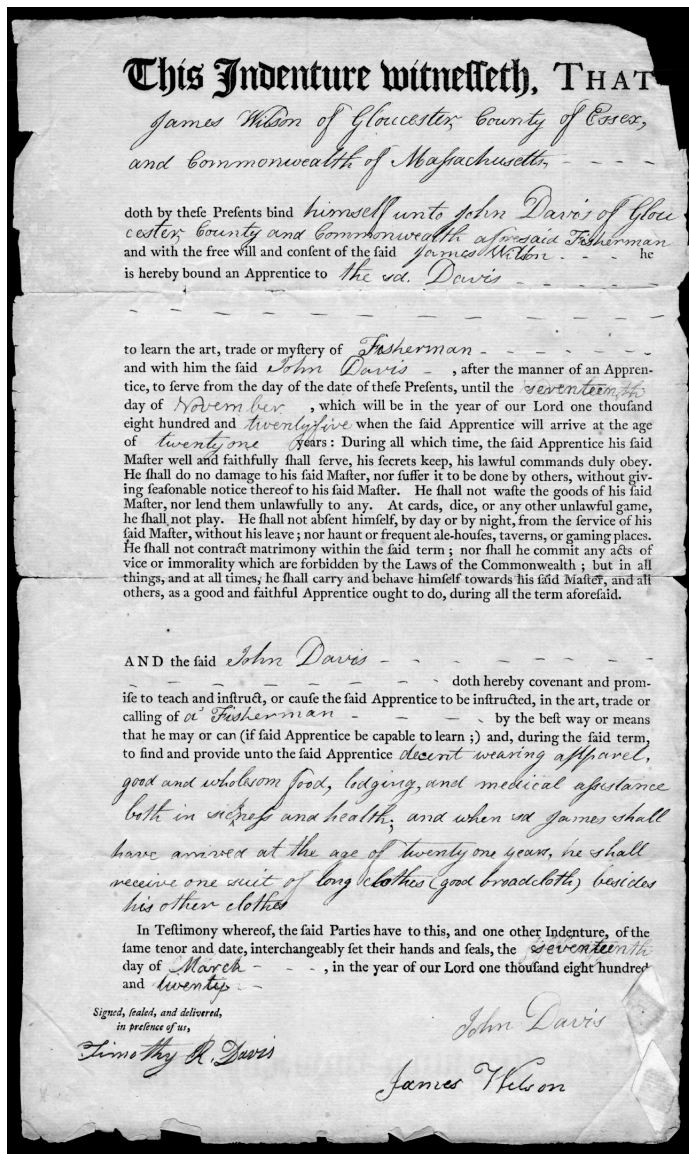 This Indenture witneſſeth, THAT
James Wilson of Gloucester, County of Essex,
and Commonwealth of Maſsachusetts, - - - -
doth by theſe Preſents bind himself unto John Davis of Glou
cester, County and Commonwealth aforesaid Fisherman
and with the free will and conſent of the ſaid James Wilson - - - he
is hereby bound an Apprentice to the sd. Davis - - - -
to learn the art, trade or myſtery of Fisherman - - - - - -
and with him the ſaid John Davis - , after the manner of an Appren-
tice, to ſerve from the day of the date of theſe Preſents, until the seventeenth
day of November , which will be in the year of our Lord one thouſand
eight hundred and twenty five when the ſaid Apprentice will arrive at the age
of twenty one years: During all which time, the ſaid Apprentice his ſaid
Maſter well and faithfully ſhall ſerve, his ſecrets keep, his lawful commands duly obey.
He ſhall do no damage to his ſaid Maſter, nor ſuffer it to be done by others, without giv-
ing ſeaſonable notice thereof to his ſaid Maſter. He ſhall not waſte the goods of his ſaid
Maſter, nor lend them unlawfully to any. At cards, dice, or any other unlawful game,
he ſhall not play. He ſhall not abſent himſelf, by day or by night, from the ſervice of his
ſaid Maſter, without his leave; nor haunt or frequent ale-houſes, taverns, or gaming places.
He ſhall not contract matrimony within the ſaid term; nor ſhall he commit any acts of
vice or immorality which are forbidden by the Laws of the Commonwealth; but in all
things, and at all times, he ſhall carry and behave himſelf towards his ſaid Maſter, and all
others, as a good and faithful Apprentice ought to do, during all the term aforeſaid.
AND the ſaid John Davis - - - - - -
- - - - - - - doth hereby covenant and prom-
iſe to teach and inſtruct, or cauſe the ſaid Apprentice to be inſtructed, in the art, trade or
calling of a Fisherman - - - - by the beſt way or means
that he may or can (if ſaid Apprentice be capable to learn;) and, during the ſaid term,
to find and provide unto the ſaid Apprentice decent wearing apparel,
good and wholsom food, lodging, and medical aſsistance
both in sickneſs and health; and when sd James shall
have arrived at the age of twenty one years, he shall
receive one suit of long clothes (good broadcloth) besides
his other clothes
In Teſtimony whereof, the ſaid Parties have to this, and one other Indenture, of the
ſame tenor and date, interchangeably ſet their hands and ſeals, the seventeenth
day of March - - - , in the year of our Lord one thouſand eight hundred
and twenty - -
Signed, ſealed, and delivered,
in preſence of us,
John Davis
Timothy R. Davis
James Wilson